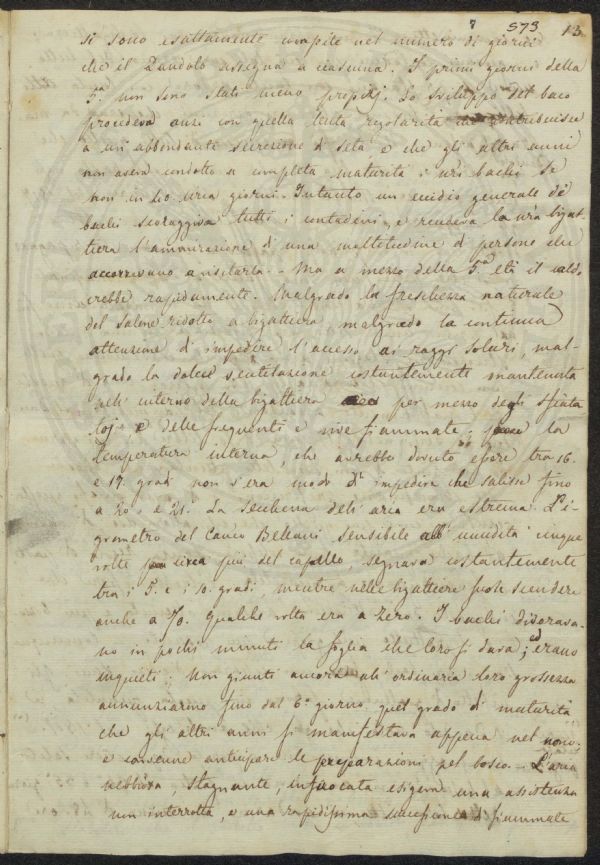 7 573 13
si sono esattamente compite nel numero di giorni
che il Dandolo assegna a ciascuna. I primi giorni della
5.a non sono stati meno propizj. Lo sviluppo del baco
procedeva anzi con quella lenta regolarità che contribuisce
a un'abbondante secrezione di seta e che gli altri anni
non aveva condotto a completa maturità i miei bachi se
non in 40 circa giorni. Intanto un eccidio generale de'
bachi scoraggiva tutti i contadini, e rendeva la mia bigat-
tiera l'ammirazione d'una moltitudine di persone che
accorrevano a visitarla. - Ma a mezzo della 5.a età il caldo
crebbe rapidamente. Malgrado la freschezza naturale
del salone ridotto a bigattiera malgrado la continua
attenzione d'impedire l'accesso ai raggi solari, mal-
grado la dolce ventilazione costantemente mantenuta
nell'interno della bigattiera per mezzo degli sfiata-
toj, e delle frequenti e vive fiammate; la
temperatura interna, che avrebbe dovuto essere tra 16.
e 17. gradi non v'era modo d'impedire che salisse fino
a 20. e 21. La secchezza dell'aria era estrema. L'i-
grometro del Can.co Bellani sensibile all'umidità cinque
volte circa più del capello, segnava costantemente
tra i 5. e i 10. gradi, mentre nelle bigattiere suole scendere
anche a 70. Qualche volta era a zero. I bachi divorava-
no in pochi minuti la foglia che loro si dava; ed erano
inquieti. Non giunti ancora all'ordinaria loro grossezza
annunziarono fino dal 6.o giorno quel grado di maturità
che gli altri anni si manifestava appena nel nono,
e convenne anticipare le preparazioni pel bosco. - L'aria
nebbiosa, stagnante, infuocata esigeva una assistenza
non interrotta, e una rapidissima successione di fiammate